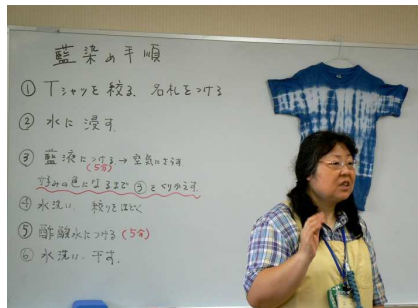 藍染の手順
① Tシャツを絞る、名札をつける
② 水に浸す
③ 藍液につける→空気にさらす
(5分)
好みの色になるまで③をくりかえす
④ 水洗い 絞りをほどく
⑤ 酢酸水につける(5分)
⑥ 水洗い、干す。